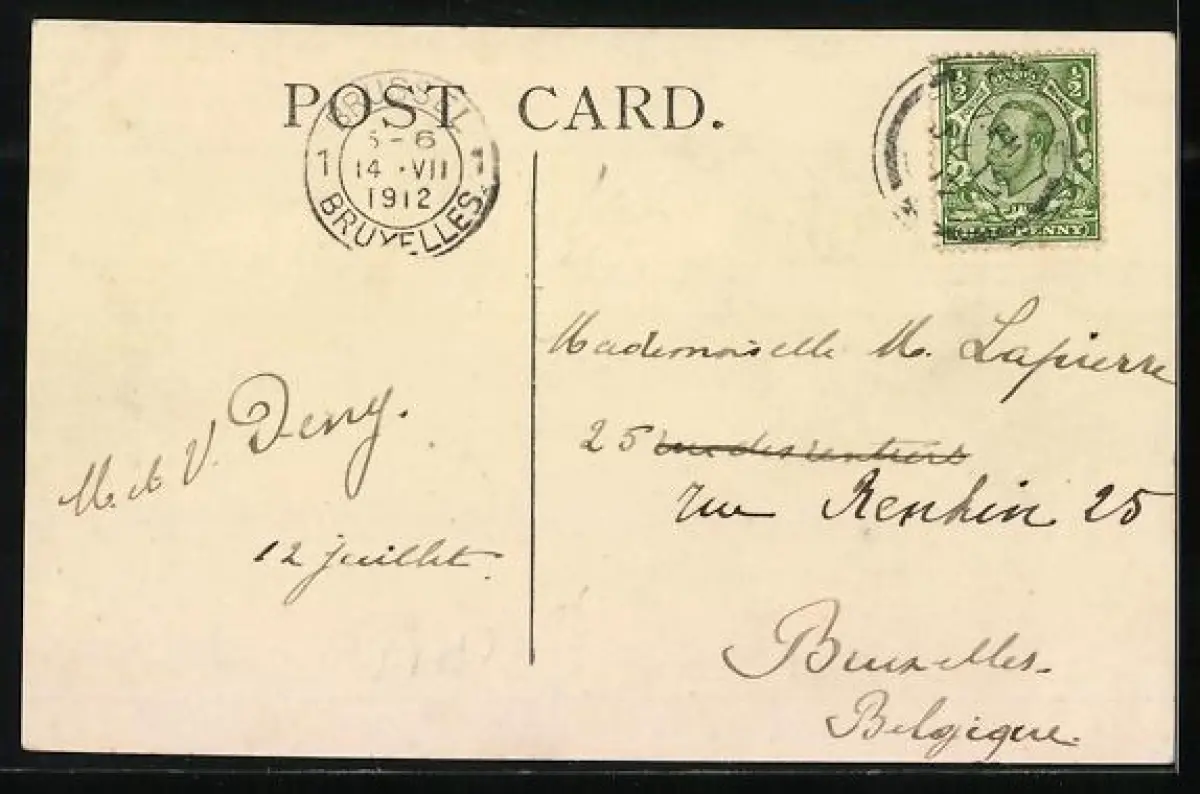 POST CARD.
BRUSSEL
5-6
1
14 · VII
1912
BRUXELLES
1/2 1/2
HALFPENNY
Mademoiselle M. Lapierre
25
rue Renkin 25
Bruxelles.
Belgique.
M. et V. Deny.
12 juillet.